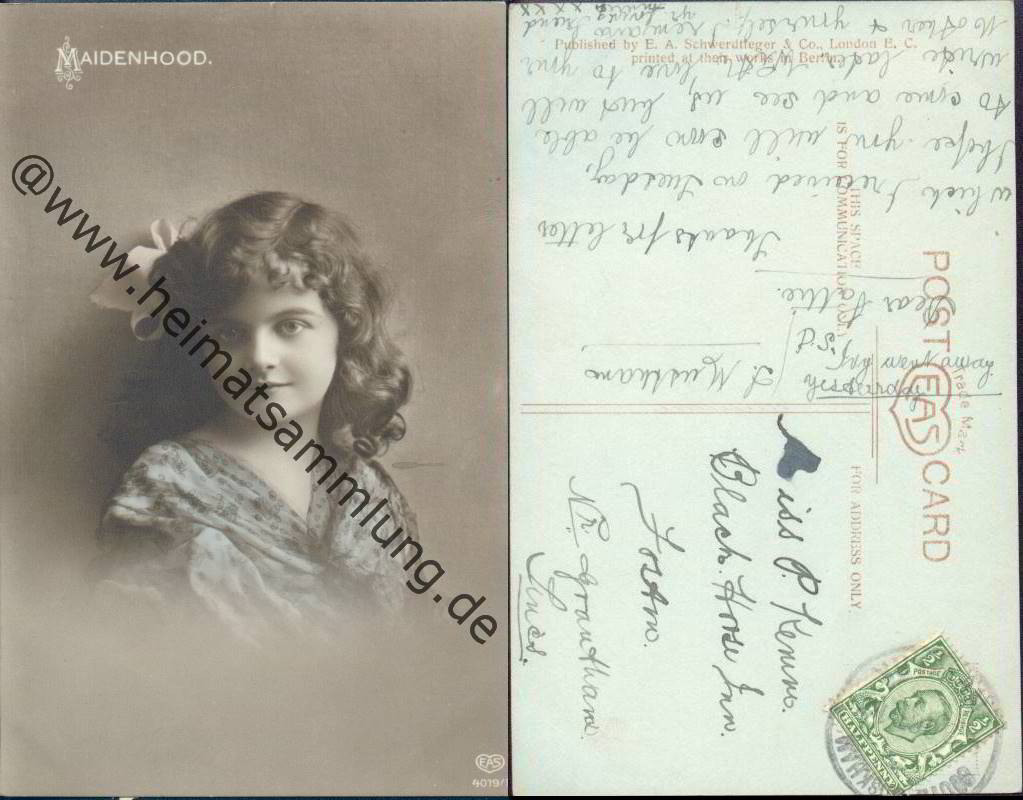 MAIDENHOOD.
@www.heimatsammlung.de
EAS
4019/
POST CARD
Trade Mark
EAS
THIS SPACE
IS FOR COMMUNICATION ONLY
FOR ADDRESS ONLY
Published by E. A. Schwerdtfeger & Co., London E. C.
printed at their works in Berlin.
Dear Pattie.
Thanks for letter
which I received on Tuesday,
I hope you will soon be able
to come and see us, but will
write later. With love to you
Mother & yourself I remain
yr loving friend
xxx
iss P. Kemm.
Black. Horse Inn.
Foston.
Nr. Grantham.
Lincs.
½ POSTAGE ½
HALFPENNY